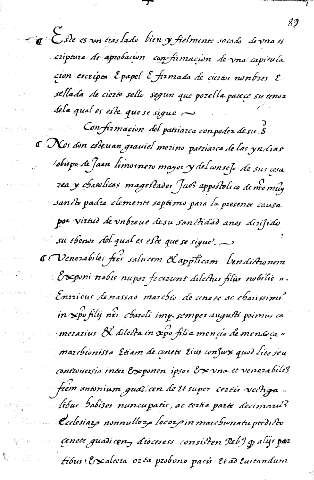 89
Este es un traslado bien y fielmente sacado de una es
criptura de aprobacion confirmacion de una capitula
cion escripta E papel E firmada de ciertos nombres E
sellada de cierto sello segun que por ella parece su tenor
de la qual es este que se sigue
Confirmacion del patriarca con poder de su S
Nos don esteuan grauiel merino patriarca de las yndias
obispo de Jaen limosnero mayor y del consejo de sus cesa
rea y chatolicas magestades Juez apostolico de nro muy
sancto padre clemente septimo para la presente causa
por virtud de un breue de su sanctidad a nos dirigido
su thenor del qual es este que se sigue
Venerabiles frēs salutem & applicam bendictionem
Exponi nobis nuper fecerunt dilectus filius nobilis
Enrricus de nassao marchio de cenete ac charissimi
in xpo filij nri charoli imp. semper augusti primus ca
merarius & dilecta in xpo filia mencia de mendoça
marchionissa Etiam de cenete Eius conjux quod lices seu
controuersia inter Exponentes ipsos Ex una et venerabilē
frēm antonium guadicen de Et super certis vestiga
libus habices nuncupatis, ac tertia parte decimarum
Ecclesiarum nonnullorum locorum in marchionatu predicto
cenete guadicen diocesis consisten Reb' aliis par
tibus Ex altera orta pro bono pacis Et ad euitandum